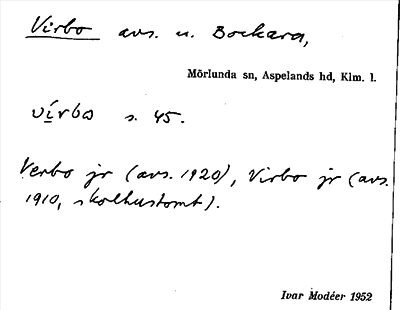 Virbo avs. u. Bockara,
Mörlunda sn, Aspelands hd, Klm. l.
vírbo s. 45.
Verbo jr (avs. 1920), Virbo jr (avs.
1910, skolhustomt).
Ivar Modéer 1952